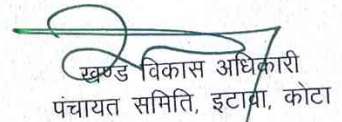 खण्ड विकास अधिकारी
पंचायत समिति, इटावा, कोटा